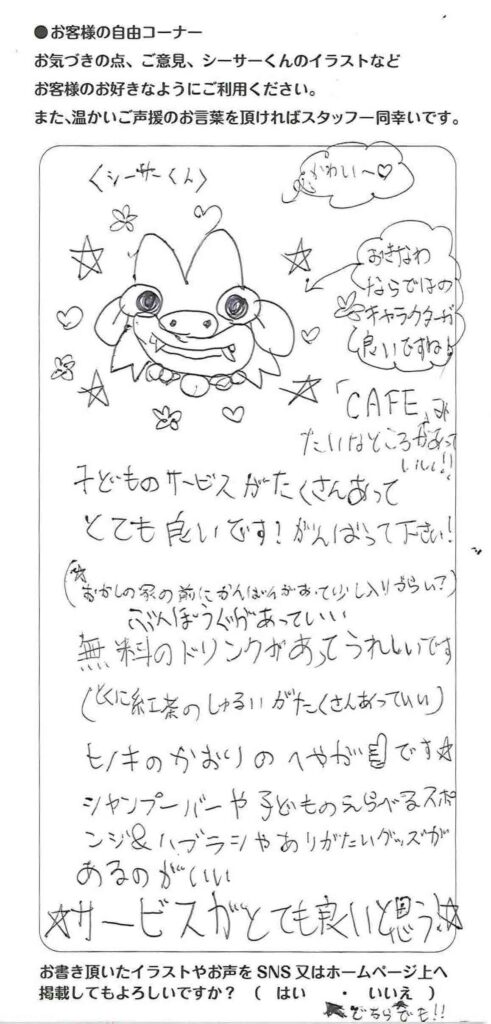 ●お客様の自由コーナー
お気づきの点、ご意見、シーサーくんのイラストなど
お客様のお好きなようにご利用ください。
また、温かいご声援のお言葉を頂ければスタッフ一同幸いです。
〈シーサーくん〉
かわい〜♡
おきなわ
ならではの
キャラクターが
良いですね!
「CAFE」み
たいなところがあって
いい!!
子どものサービスがたくさんあって
とても良いです!がんばって下さい!
(☆おかしの家の前にかんばんがあって少し入りづらい?)
ぶんぼうぐがあっていい
無料のドリンクがあってうれしいです
(とくに紅茶のしゅるいがたくさんあっていい)
ヒノキのかおりのへやが です☆
シャンプーバーや子どものえらべるスポ
ンジ&ハブラシやありがたいグッズが
あるのがいい
☆サービスがとても良いと思う!☆
お書き頂いたイラストやお声をSNS又はホームページ上へ
掲載してもよろしいですか? ( はい ・ いいえ )
どちらでも!!